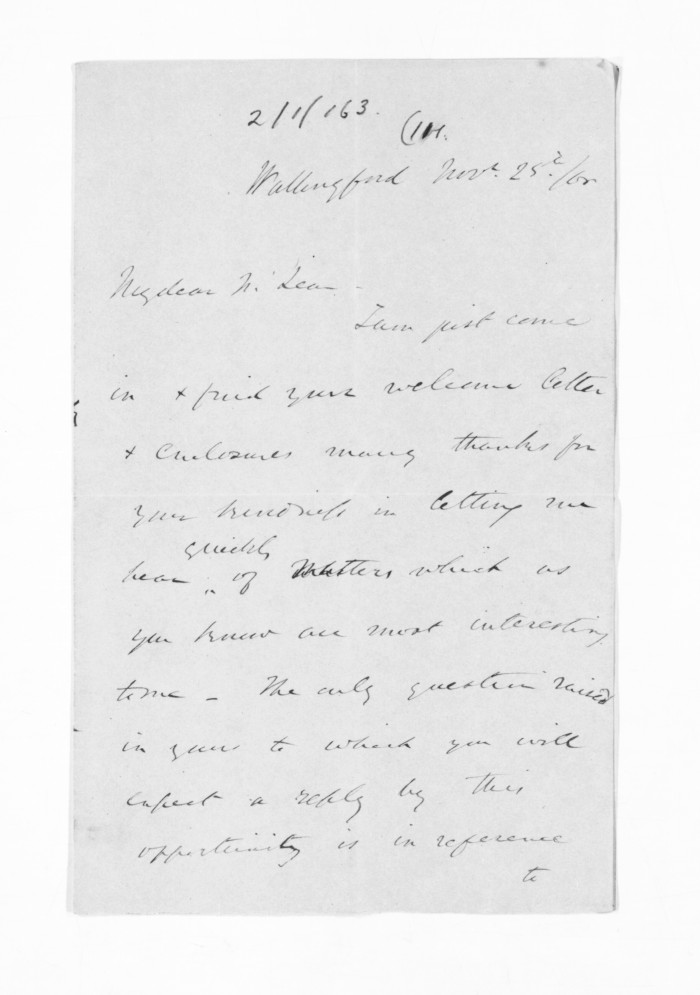 2/1/163.
(114.
Wallingford Novr. 25th /60
My dear McLean -
I am just come
in & find your welcome letter
& enclosures many thanks for
your kindness in letting me
quickly
hear of Matters which as
you know are most interesting
to me - The only question raised
in yours to which you will
expect a reply by this
opportunity is in reference
to